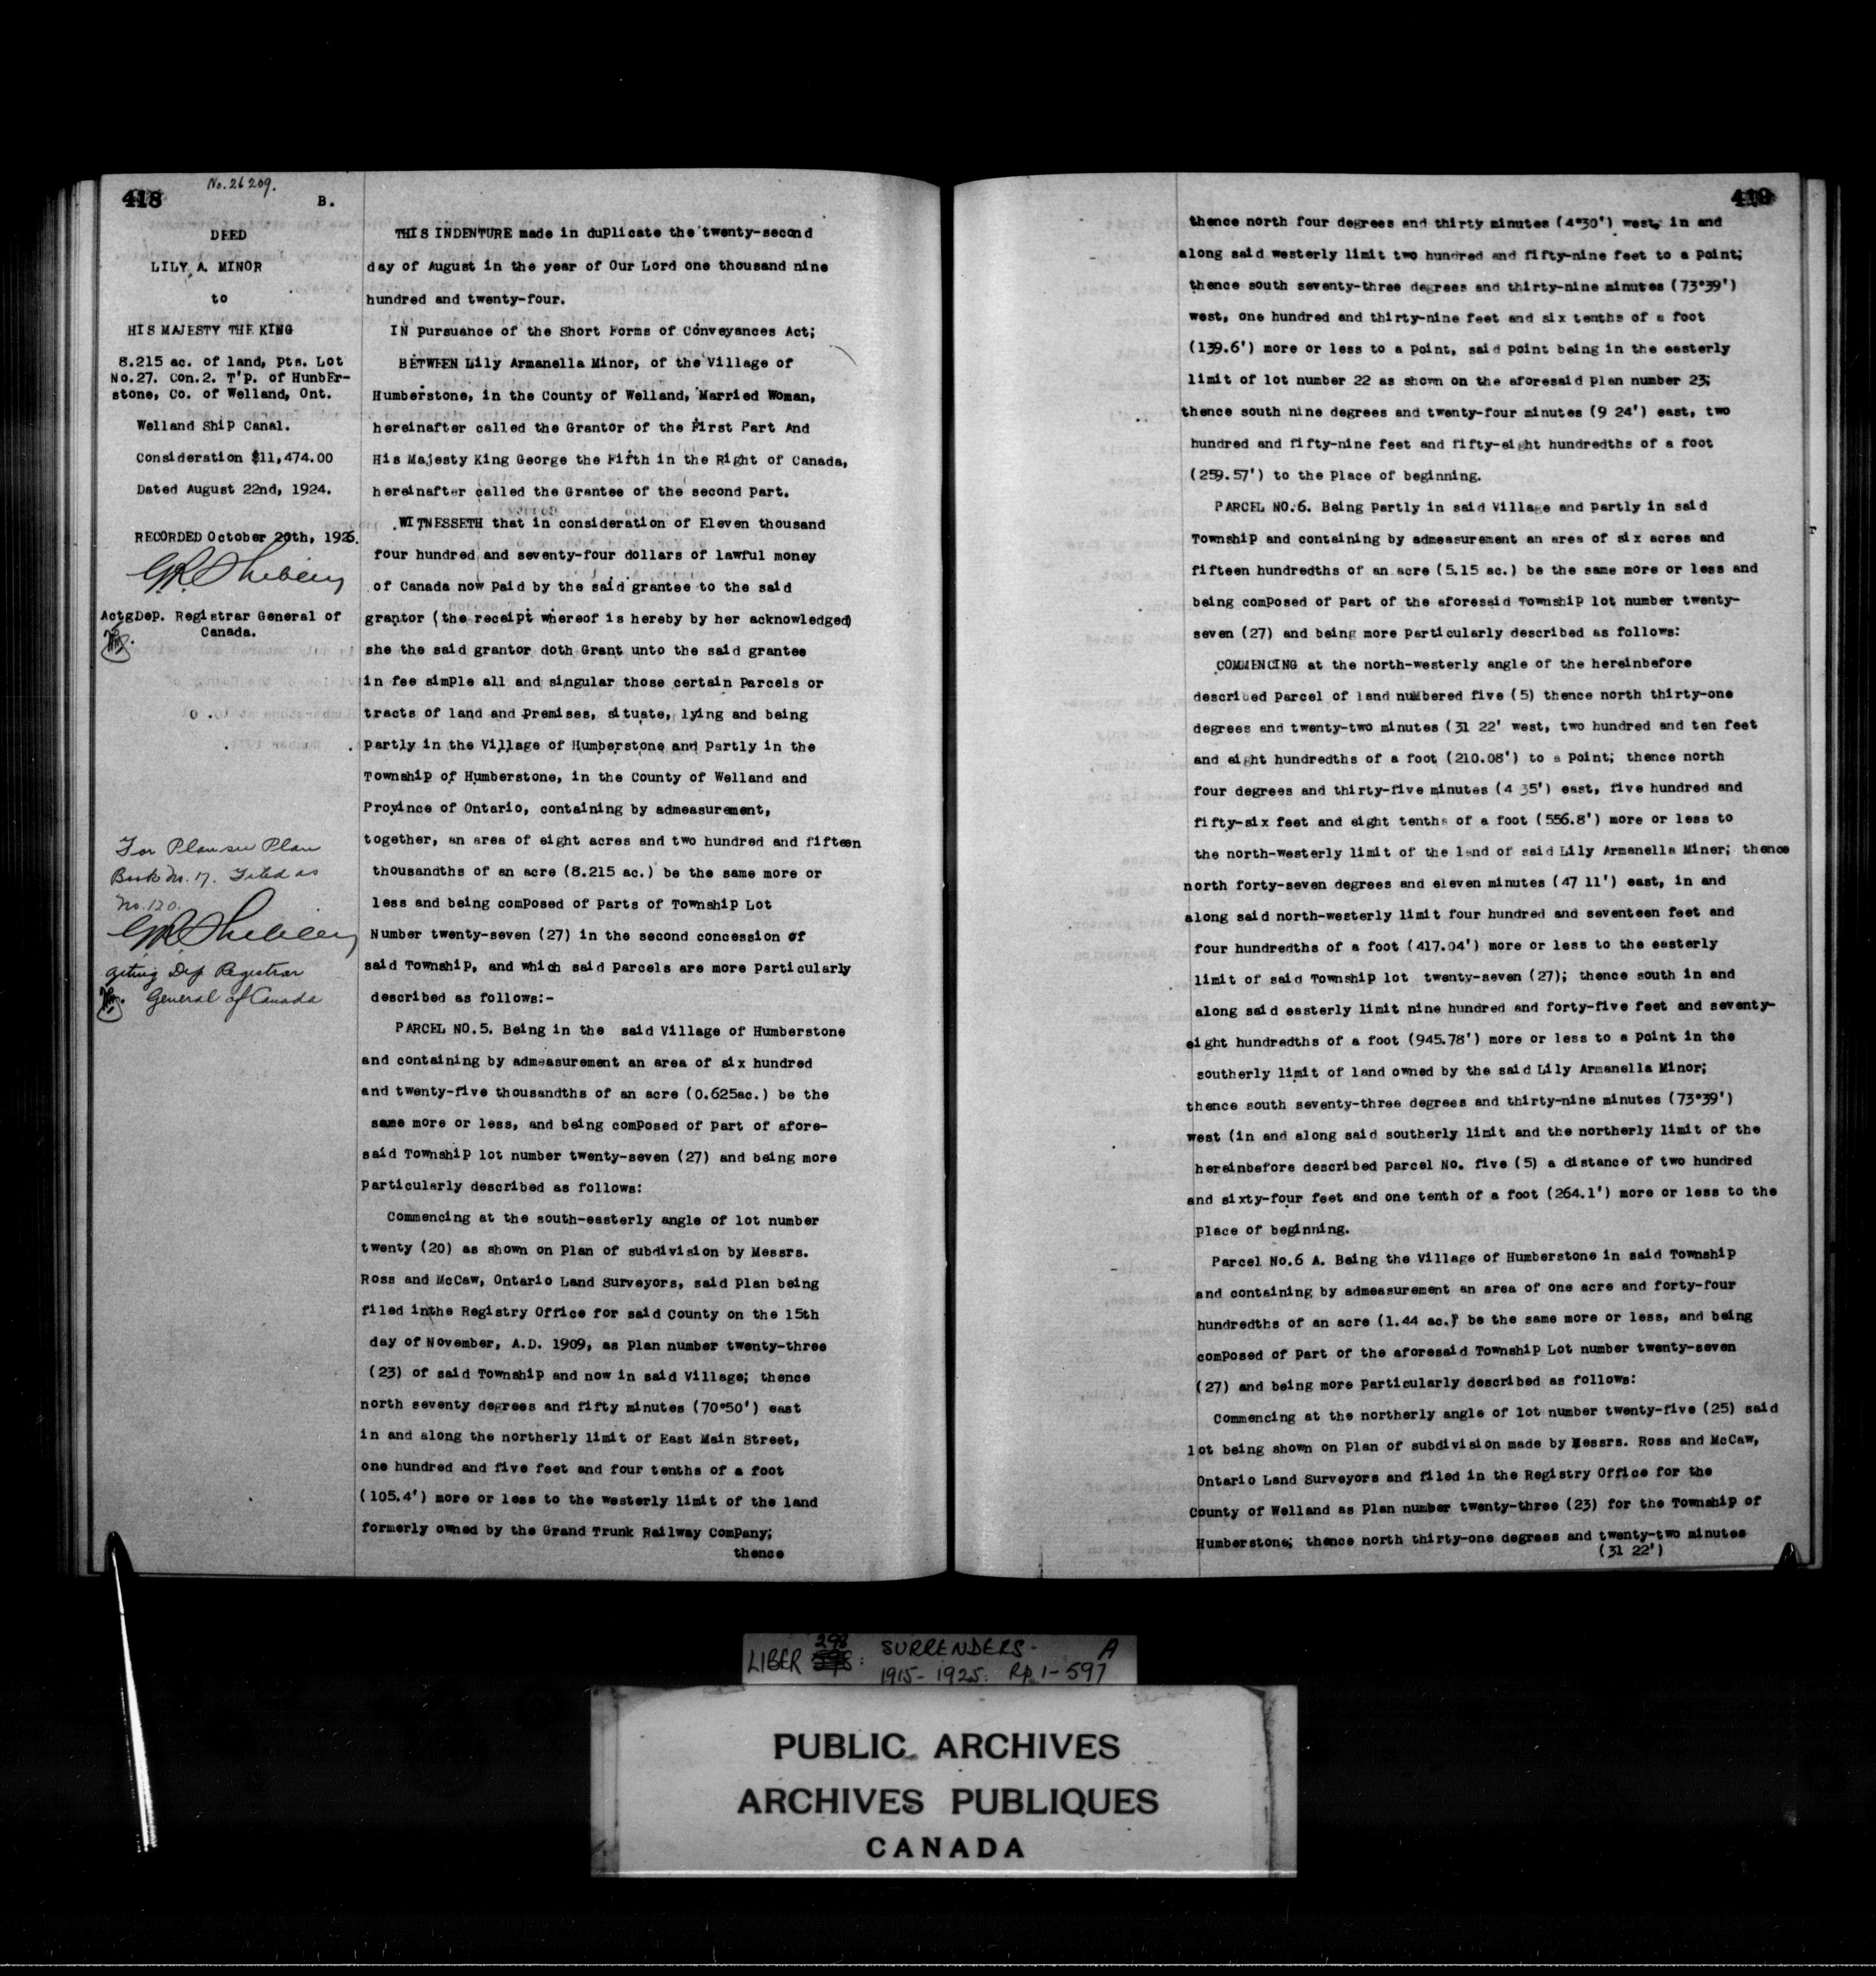 No. 26209.
418
B.
DEED
LILY A. MINOR
to
HIS MAJESTY THE KING
8.215 ac. of land, Pts. Lot
No.27. Con.2. T'p. of HunbEr-
stone, Co. of Welland, Ont.
Welland Ship Canal.
Consideration $11,474.00
Dated August 22nd, 1924.
RECORDED October 20th, 1925.
ActgDep. Registrar General of
Canada.
For Plan see Plan
Book No. 17. Filed as
No. 120.
Acting Dep Registrar
General of Canada
THIS INDENTURE made in duplicate the twenty-second
day of August in the year of Our Lord one thousand nine
hundred and twenty-four.
IN pursuance of the Short Forms of Conveyances Act;
BETWEEN Lily Armanella Minor, of the Village of
Humberstone, in the County of Welland, Married Woman,
hereinafter called the Grantor of the First Part And
His Majesty King George the Fifth in the Right of Canada,
hereinafter called the Grantee of the second Part.
WITNESSETH that in consideration of Eleven thousand
four hundred and seventy-four dollars of lawful money
of Canada now Paid by the said grantee to the said
grantor (the receipt whereof is hereby by her acknowledged)
she the said grantor doth Grant unto the said grantee
in fee simple all and singular those certain Parcels or
tracts of land and Premises, situate, lying and being
Partly in the Village of Humberstone and Partly in the
Township of Humberstone, in the County of Welland and
Province of Ontario, containing by admeasurement,
together, an area of eight acres and two hundred and fifteen
thousandths of an acre (8.215 ac.) be the same more or
less and being composed of Parts of Township Lot
Number twenty-seven (27) in the second concession of
said Township, and which said Parcels are more Particularly
described as follows:-
PARCEL NO.5. Being in the said Village of Humberstone
and containing by admeasurement an area of six hundred
and twenty-five thousandths of an acre (0.625ac.) be the
same more or less, and being composed of Part of afore-
said Township lot number twenty-seven (27) and being more
Particularly described as follows:
Commencing at the south-easterly angle of lot number
twenty (20) as shown on Plan of subdivision by Messrs.
Ross and McCaw, Ontario Land Surveyors, said Plan being
filed inthe Registry Office for said County on the 15th
day of November, A.D. 1909, as Plan number twenty-three
(23) of said Township and now in said Village; thence
north seventy degrees and fifty minutes (70°50') east
in and along the northerly limit of East Main Street,
one hundred and five feet and four tenths of a foot
(105.4') more or less to the westerly limit of the land
formerly owned by the Grand Trunk Railway Company;
thence
419
thence north four degrees and thirty minutes (4°30') west, in and
along said westerly limit two hundred and fifty-nine feet to a Point;
thence south seventy-three degrees and thirty-nine minutes (73°39')
west, one hundred and thirty-nine feet and six tenths of a foot
(139.6') more or less to a Point, said point being in the easterly
limit of lot number 22 as shown on the aforesaid Plan number 23;
thence south nine degrees and twenty-four minutes (9 24') east, two
hundred and fifty-nine feet and fifty-eight hundredths of a foot
(259.57') to the Place of beginning.
PARCEL NO.6. Being Partly in said Village and Partly in said
Township and containing by admeasurement an area of six acres and
fifteen hundredths of an acre (5.15 ac.) be the same more or less and
being composed of Part of the aforesaid Township lot number twenty-
seven (27) and being more Particularly described as follows:
COMMENCING at the north-westerly angle of the hereinbefore
described Parcel of land numbered five (5) thence north thirty-one
degrees and twenty-two minutes (31 22' west, two hundred and ten feet
and eight hundredths of a foot (210.08') to a Point; thence north
four degrees and thirty-five minutes (4 35') east, five hundred and
fifty-six feet and eight tenths of a foot (556.8') more or less to
the north-westerly limit of the land of said Lily Armanella Miner; thence
north forty-seven degrees and eleven minutes (47 11') east, in and
along said north-westerly limit four hundred and seventeen feet and
four hundredths of a foot (417.04') more or less to the easterly
limit of said Township lot twenty-seven (27); thence south in and
along said easterly limit nine hundred and forty-five feet and seventy-
eight hundredths of a foot (945.78') more or less to a Point in the
southerly limit of land owned by the said Lily Armanella Minor;
thence south seventy-three degrees and thirty-nine minutes (73°39')
west (in and along said southerly limit and the northerly limit of the
hereinbefore described Parcel No. five (5) a distance of two hundred
and sixty-four feet and one tenth of a foot (264.1') more or less to the
Place of beginning.
Parcel No.6 A. Being the Village of Humberstone in said Township
and containing by admeasurement an area of one acre and forty-four
hundredths of an acre (1.44 ac.) be the same more or less, and being
composed of Part of the aforesaid Township Lot number twenty-seven
(27) and being more Particularly described as follows:
Commencing at the northerly angle of lot number twenty-five (25) said
lot being shown on Plan of subdivision made by Messrs. Ross and McCaw,
Ontario Land Surveyors and filed in the Registry Office for the
County of Welland as Plan number twenty-three (23) for the Township of
Humberstone; thence north thirty-one degrees and twenty-two minutes
(31 22')
LIBER 298: SURRENDERS- A
1915-1925: Pp 1-597
PUBLIC ARCHIVES
ARCHIVES PUBLIQUES
CANADA